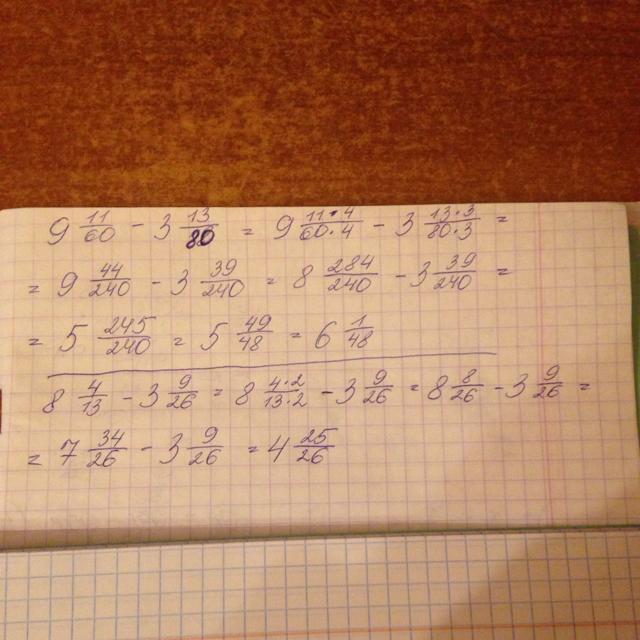 9 11/60 - 3 13/80 = 9 11·4/60·4 - 3 13·3/80·3 =
= 9 44/240 - 3 39/240 = 8 284/240 - 3 39/240 =
= 5 245/240 = 5 49/48 = 6 1/48
8 4/13 - 3 9/26 = 8 4·2/13·2 - 3 9/26 = 8 8/26 - 3 9/26 =
= 7 34/26 - 3 9/26 = 4 25/26